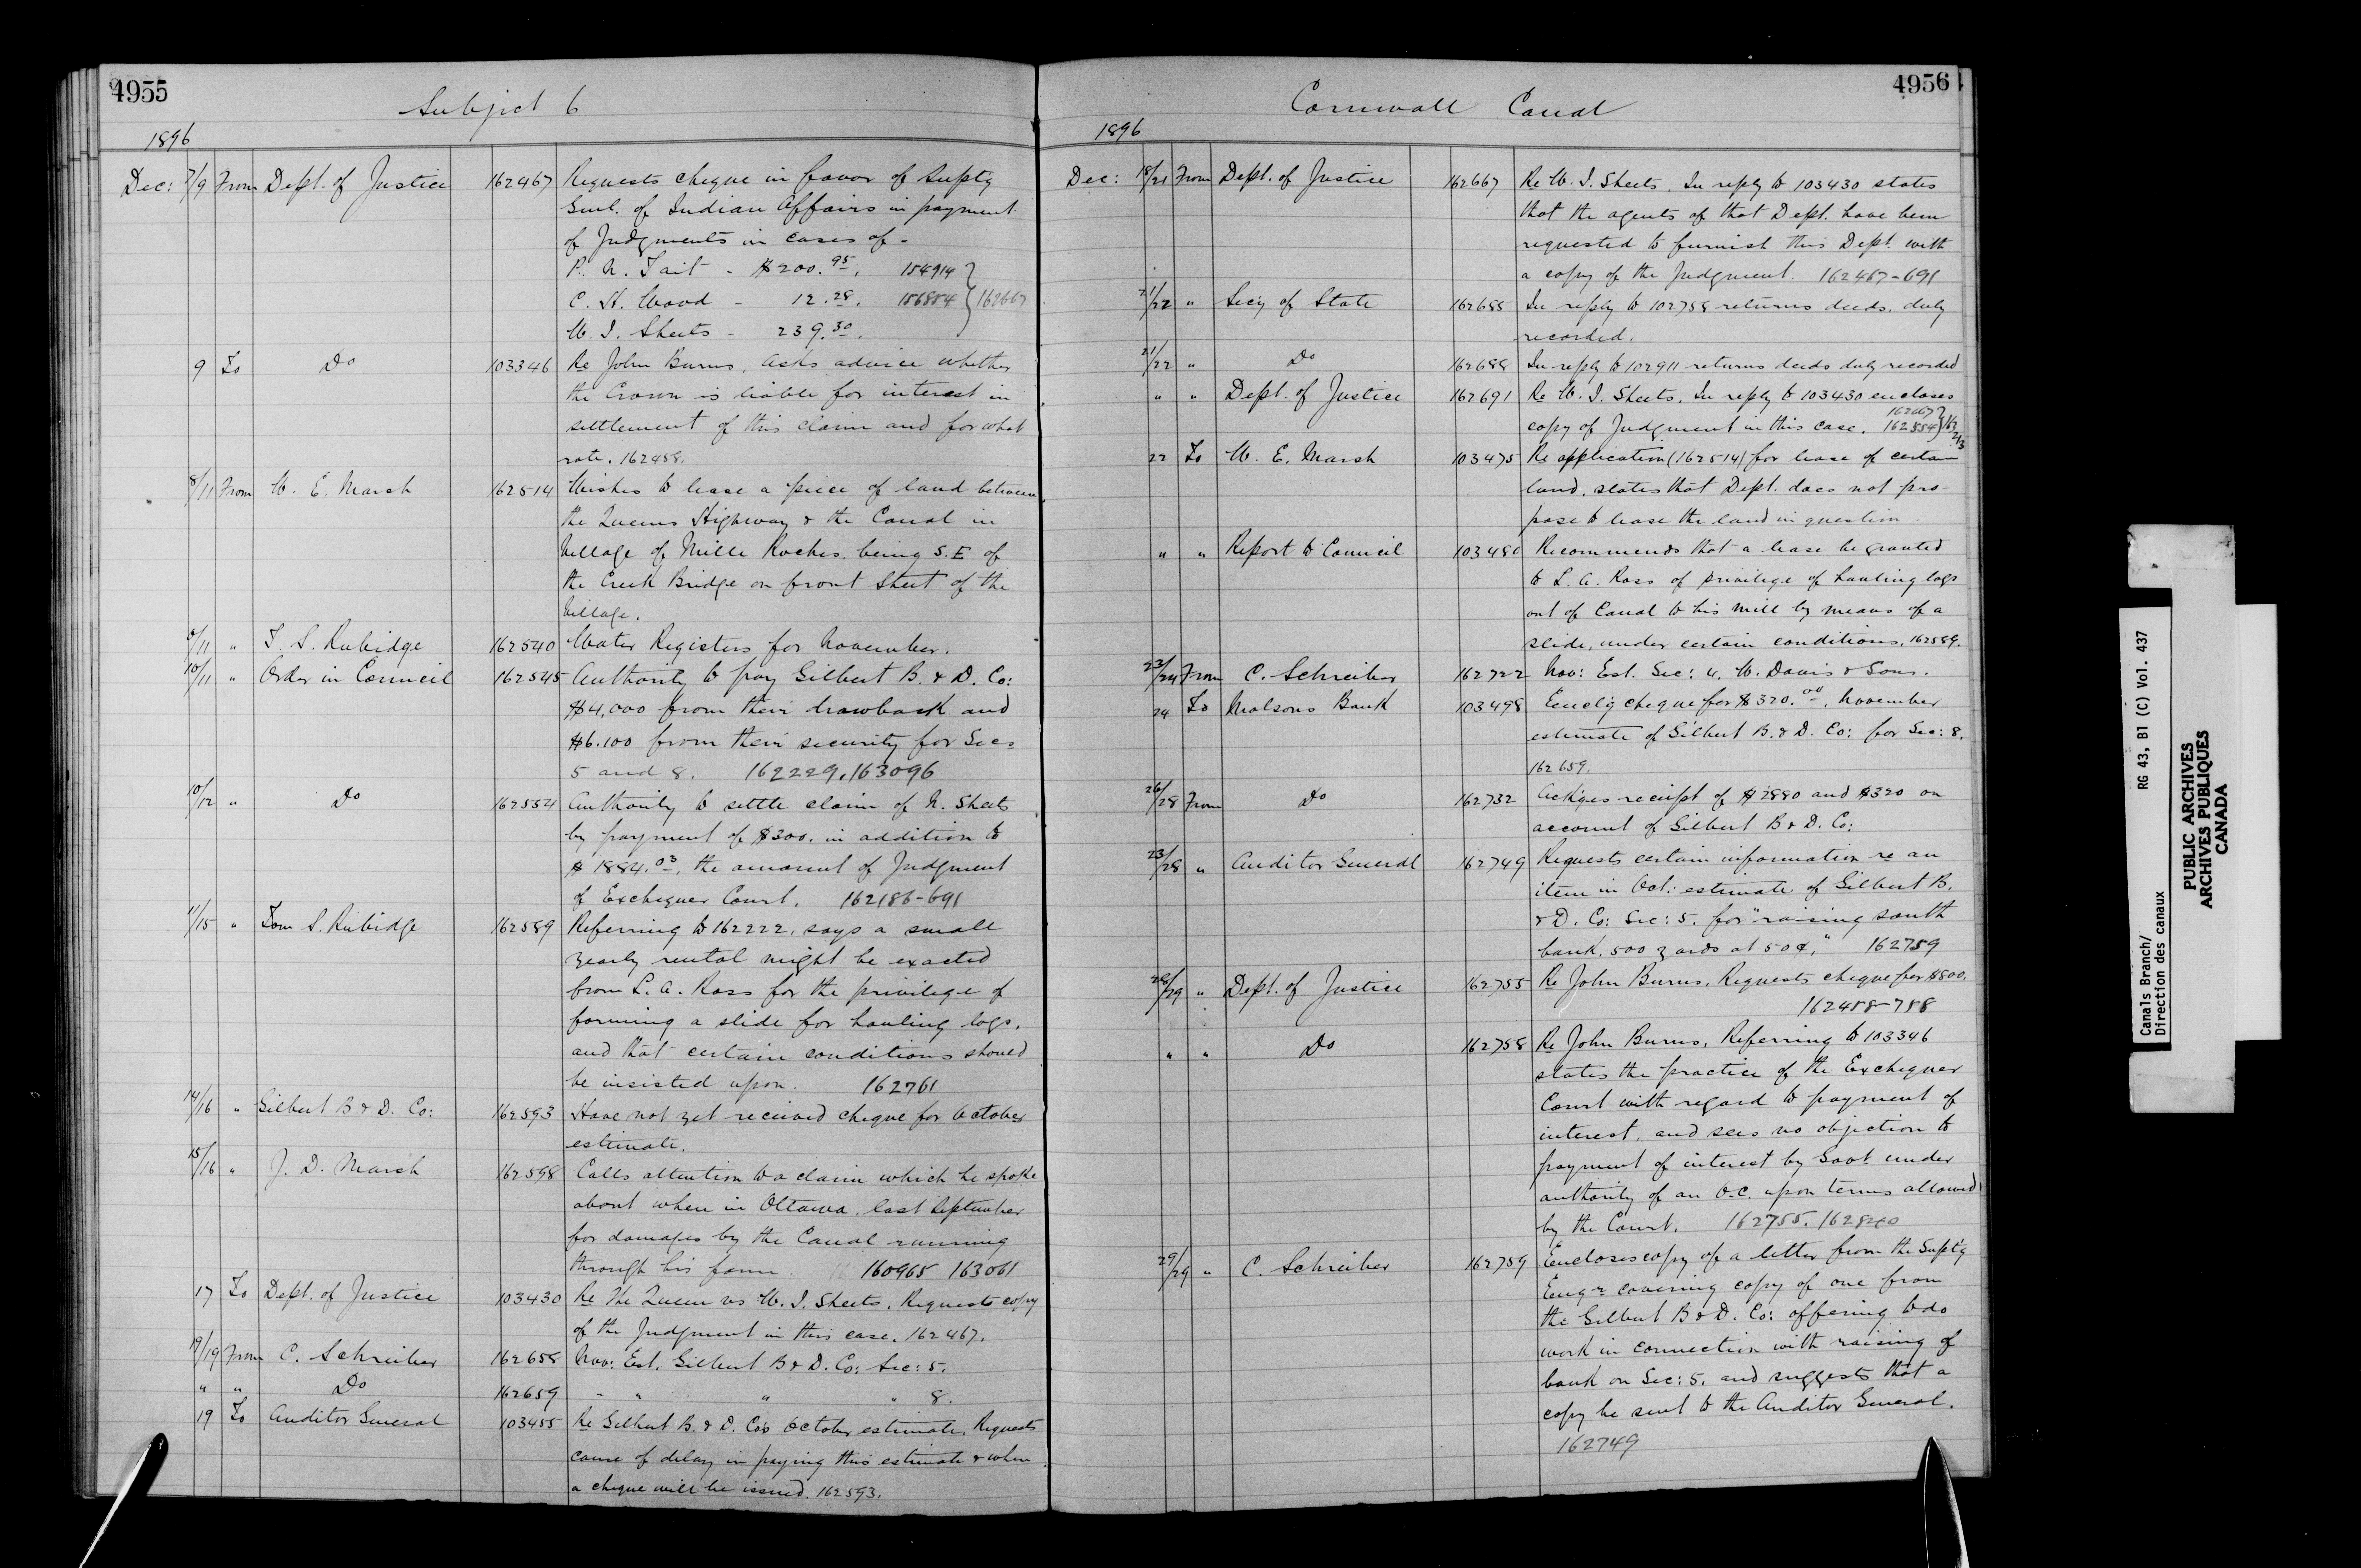 4955
Subject 6
1896
Dec: 7/9 From Dept. of Justice 162467 Requests cheque in favor of Supty
Genl. of Indian Affairs in payment
of Judgments in cases of -
P. N. Tait - $200.95. 154914
C. H. Wood - 12.28. 156854 } 162667
W. I. Sheets - 239.30.
9 To Do 103346 Re John Burns, asks advice whether
the Crown is liable for interest in
settlement of this claim and for what
rate. 162458.
8/11 From W. E. Marsh 162514 Wishes to lease a piece of land between
the Queens Highway & the Canal in
Village of Mille Roches being S.E of
the Creek Bridge on front Street of the
Village.
/11 " T. S. Rubidge 162540 Water Registers for November.
10/11 " Order in Council 162545 Authority to pay Gilbert B. & D. Co:
$4,000 from their drawback and
$6.100 from their security for Secs
5 and 8. 162229.163096
10/12 " Do 162554 Authority to settle claim of N. Sheets
by payment of $300. in addition to
$1884.03, the amount of Judgment
of Exchequer Court. 162186-691
11/15 " Tom S. Rubidge 162589 Referring to 162222, says a small
yearly rental might be exacted
from L. A. Ross for the privilege of
forming a slide for hauling logs,
and that certain conditions should
be insisted upon. 162761
14/16 " Gilbert B & D. Co: 162593 Have not yet received cheque for October
estimate.
15/16 " J. D. Marsh 162598 Calls attention to a claim which he spoke
about when in Ottawa, last September
for damages by the Canal running
through his farm. 160965 163061
17 To Dept. of Justice 103430 Re The Queen vs W. I. Sheets. Requests copy
of the Judgment in this case. 162467.
/19 From C. Schreiber 162658 Nov: Est. Gilbert B & D. Co: Sec: 5.
" " Do 162659 " " " " 8.
19 To Auditor General 103455 Re Gilbert B. & D. Co's October estimate, Requests
cause of delay in paying this estimate & when
a cheque will be issued. 162593.
4956
Cornwall Canal
1896
Dec: 18/21 From Dept. of Justice 162667 Re W. I. Sheets. In reply to 103430 states
that the agents of that Dept. have been
requested to furnish this Dept. with
a copy of the Judgment. 162467-691
21/22 " Secy of State 162685 In reply to 102758 returns deeds, duly
recorded.
21/22 " Do 162688 In reply to 102911 returns deeds duly recorded
" " Dept. of Justice 162691 Re W. I. Sheets. In reply to 103430 encloses
162667
copy of Judgment in this case. 162554}
22 To W. E. Marsh 103475 Re application (162514) for lease of certain
land, states that Dept. does not pro-
pose to lease the land in question.
" " Report to Council 103480 Recommends that a lease be granted
to L. A. Ross of privilege of hauling logs
out of Canal to his mill by means of a
slide, under certain conditions. 162589.
23/24 From C. Schreiber 162722 Nov: Est. Sec: 4. W. Davis & Sons.
24 To Molsons Bank 103498 Enclg cheque for $320.00, November
estimate of Gilbert B. & D. Co: for Sec: 8.
162659.
26/28 From Do 162732 Ackges receipt of $2880 and $320 on
account of Gilbert B & D. Co:
23/28 " Auditor General 162749 Requests certain information re an
item in Oct: estimate of Gilbert B.
& D. Co: Sec: 5. for "raising south
bank, 500 yards at 50¢." 162759
28/29 " Dept. of Justice 162755 Re John Burns, Requests cheque for $800.
162458-758
" " Do 162758 Re John Burns, Referring to 103346
states the practice of the Exchequer
Court with regard to payment of
interest, and sees no objection to
payment of interest by Govt under
authority of an O.C. upon terms allowed
by the Court. 162755. 162840
29/29 " C. Schreiber 162759 Encloses copy of a letter from the Suptg
Engr covering copy of one from
the Gilbert B & D. Co: offering to do
work in connection with raising of
bank on Sec: 5. and suggests that a
copy be sent to the Auditor General.
162749
Canals Branch/
Direction des canaux
RG 43, B1 (C) Vol. 437
PUBLIC ARCHIVES
ARCHIVES PUBLIQUES
CANADA